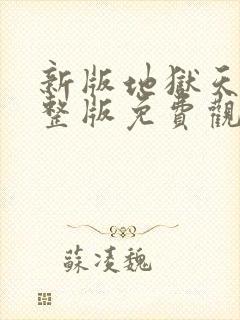 新版地獄天
整版免費觀
蘇凌魏